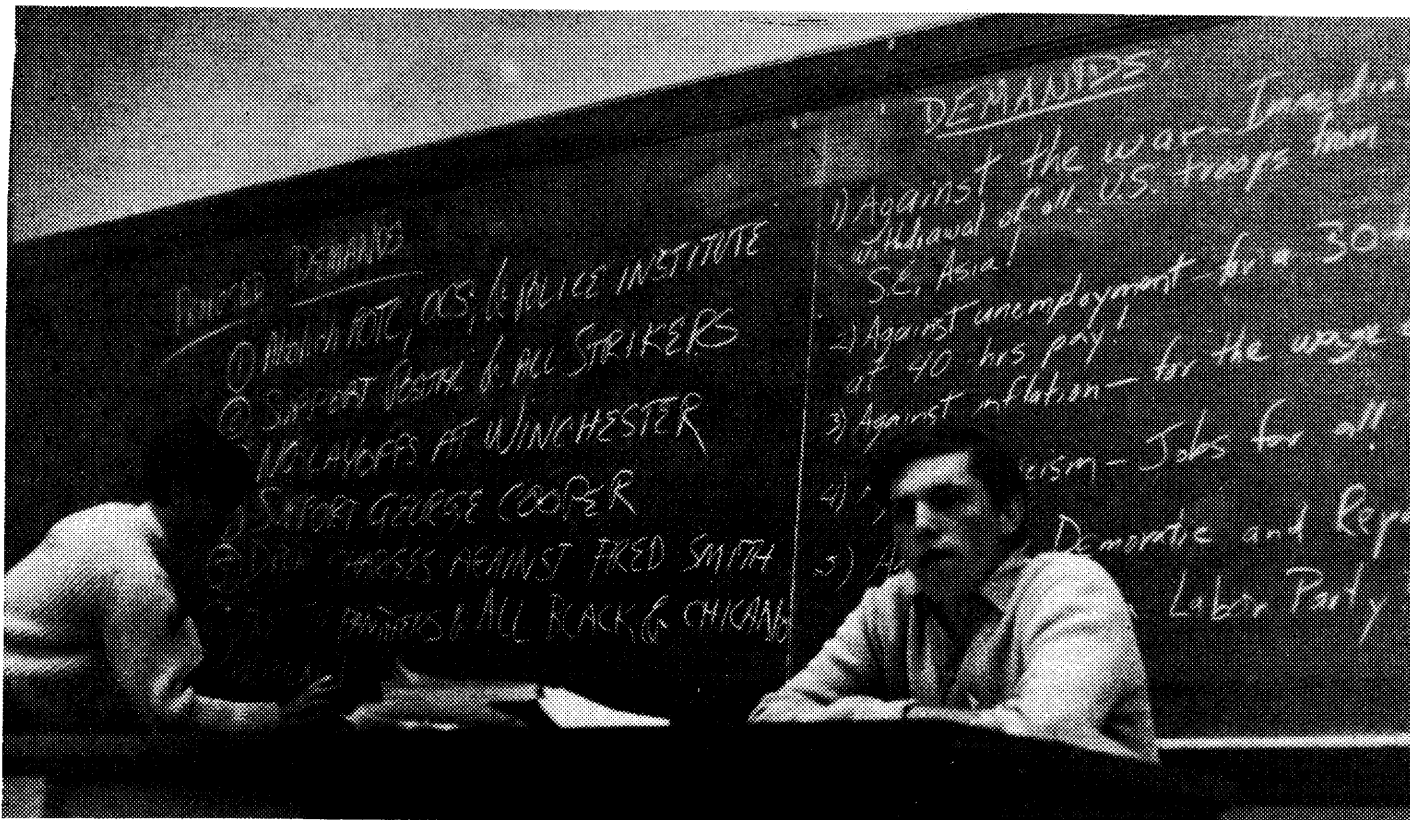 DEMANDS
① ROTC, & POLICE INSTITUTE
② SUPPORT & ALL STRIKERS
NO LAYOFFS AT WINCHESTER
SUPPORT GEORGE COOPER
AGAINST FRED SMITH
PANTHERS & ALL BLACK & CHICANO
DEMANDS
1) Against the war - Immedia
withdrawal of all U.S. troops from
S.E. Asia!
2) Against unemployment - for a 30
at 40 hrs pay.
3) Against inflation - for the wage
4) cism - Jobs for all
5) A Democratic and Rep
Labor Party